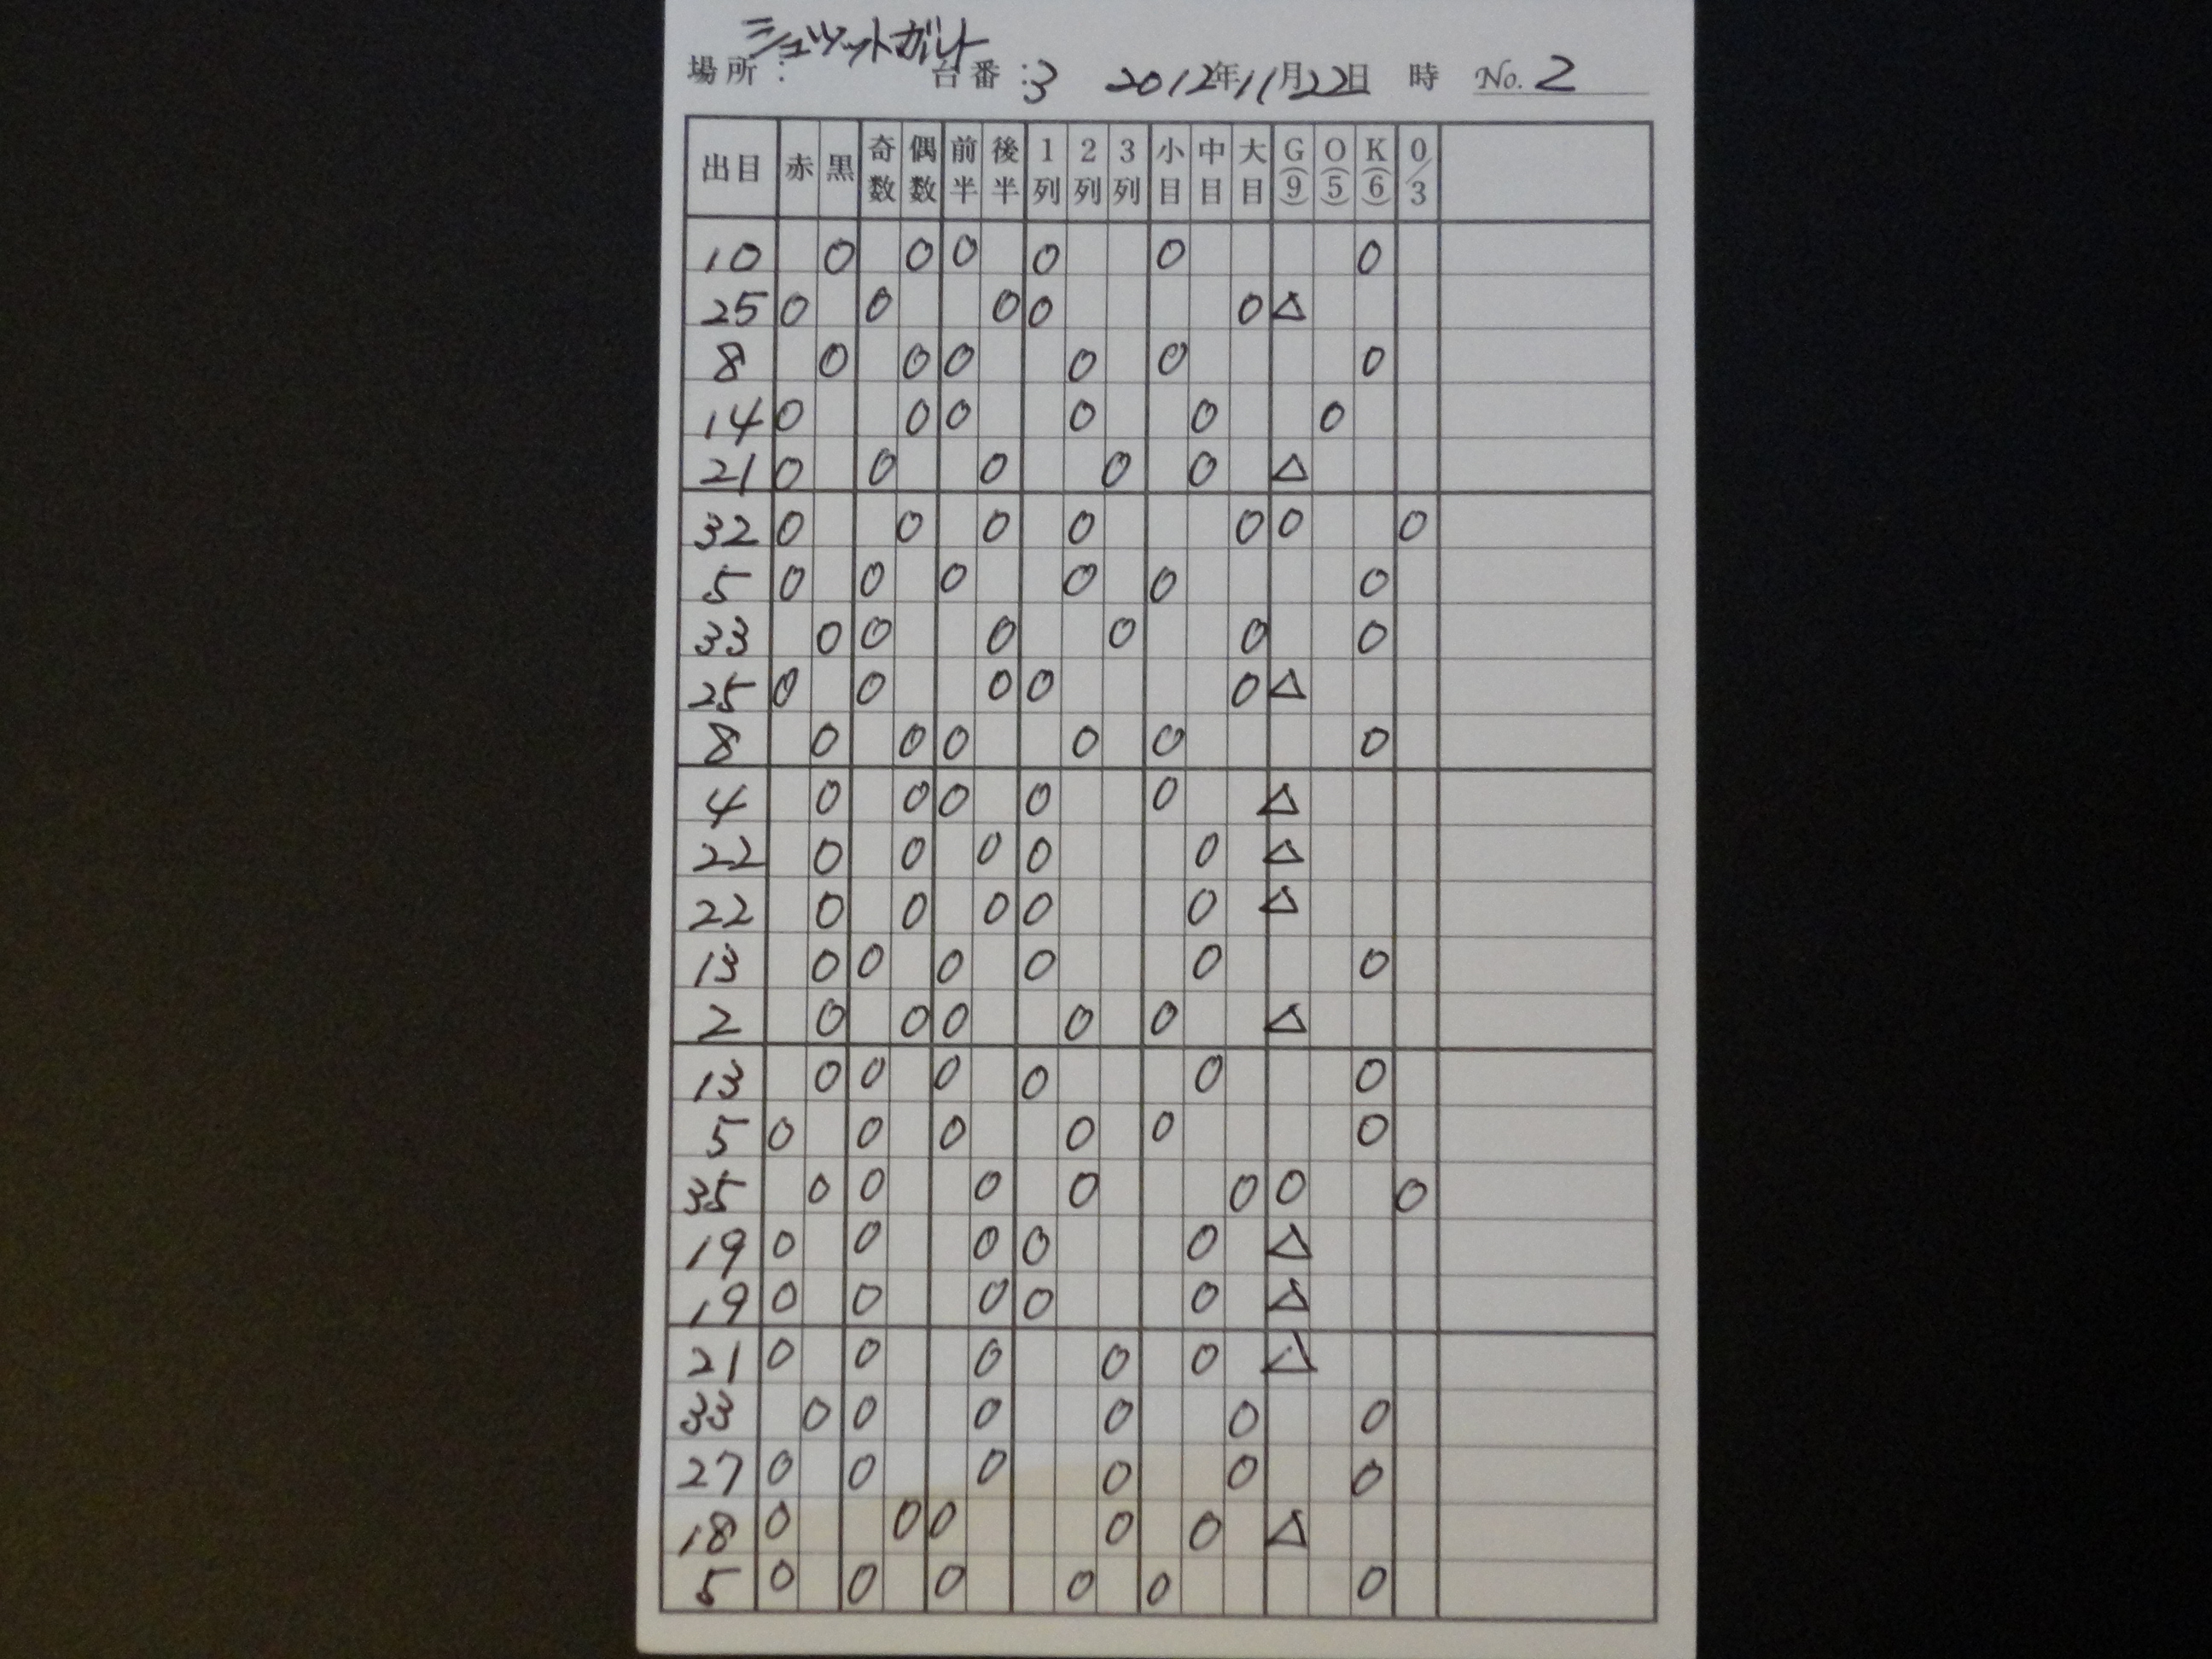 シュツットガルト
場所： 台番：3 2012年11月22日 時 No. 2
出目 赤 黒 奇数 偶数 前半 後半 1列 2列 3列 小目 中目 大目 G(9) O(5) K(6) 0/3
10 0 0 0 0 0 0
25 0 0 0 0 0 △
8 0 0 0 0 0 0
14 0 0 0 0 0 0
21 0 0 0 0 0 △
32 0 0 0 0 0 0 0
5 0 0 0 0 0 0
33 0 0 0 0 0 0
25 0 0 0 0 0 △
8 0 0 0 0 0 0
4 0 0 0 0 0 △
22 0 0 0 0 0 △
22 0 0 0 0 0 △
13 0 0 0 0 0 0
2 0 0 0 0 0 △
13 0 0 0 0 0 0
5 0 0 0 0 0 0
35 0 0 0 0 0 0 0
19 0 0 0 0 0 △
19 0 0 0 0 0 △
21 0 0 0 0 0 △
33 0 0 0 0 0 0
27 0 0 0 0 0 0
18 0 0 0 0 0 △
5 0 0 0 0 0 0